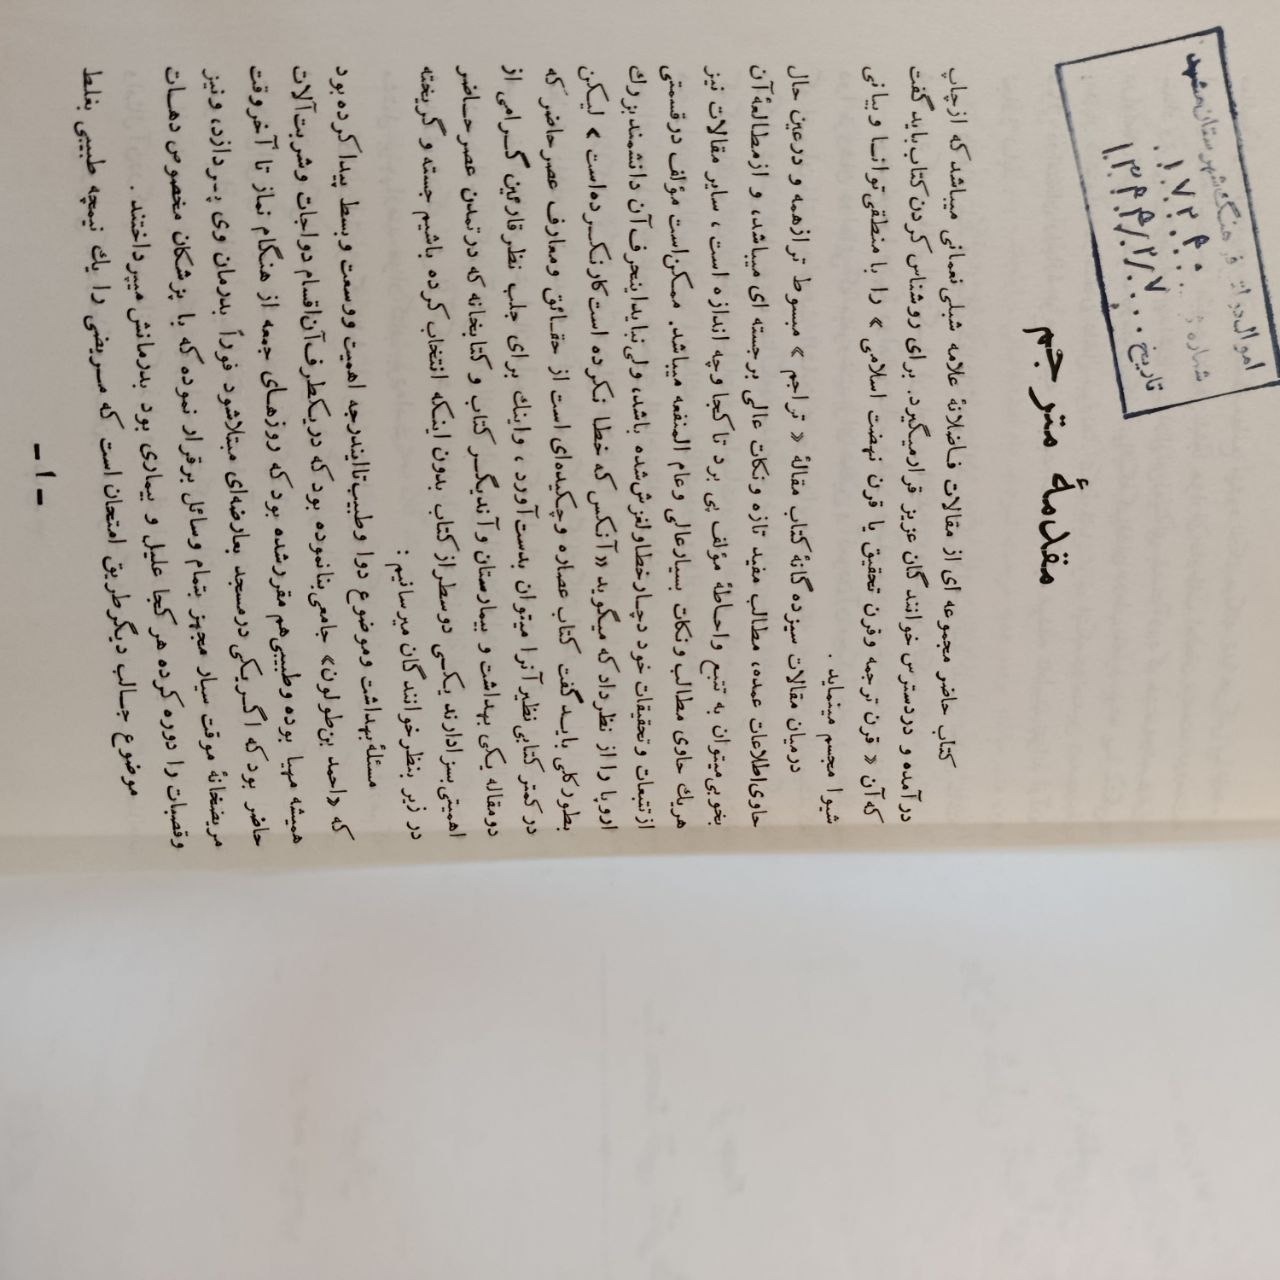 اموال دوائر فرهنگ شهرستان مشهد
شماره ۱۷۲۴۰
تاریخ ۱۳۴۴/۲/۷
مقدمهٔ مترجم
کتاب حاضر مجموعه ای از مقالات فاضلانهٔ علامه شبلی نعمانی میباشد که ازچاپ
درآمده و دردسترس خوانندگان عزیز قرارمیگیرد. برای روشناس کردن کتاب باید گفت
که آن « قرن ترجمه وقرن تحقیق یا قرن نهضت اسلامی » را با منطقی توانا و بیانی
شیوا مجسم مینماید .
درمیان مقالات سیزده گانهٔ کتاب مقالهٔ « تراجم » مبسوط ترازهمه و درعین حال
حاوی اطلاعات عمده، مطالب مفید تازه ونکات عالی برجسته ای میباشد، و ازمطالعهٔ آن
بخوبی میتوان به تتبع واحاطهٔ مؤلف پی برد تا کجا وچه اندازه است ، سایر مقالات نیز
هریك حاوی مطالب ونکات بسیارعالی وعام المنفعه میباشد. ممکن است مؤلف درقسمتی
ازتتبعات وتحقیقات خود دچارخطا ولغزش شده باشد، ولی نبایداینحرف آن دانشمندبزرك
اروپا را از نظر داد که میگوید «آنکس که خطا نکرده است کارنکرده است » لیکن
بطورکلی بایدگفت کتاب عصاره وچکیده‌ای است از حقائق ومعارف عصرحاضر که
درکمتر کتابی نظیر آنرا میتوان بدست آورد ، واینك برای جلب نظر قارئین گرامی از
دومقاله یکی بهداشت و بیمارستان و آندیگر کتاب و کتابخانه که درتمدن عصر حاضر
اهمیتی بسزا دارند یکی دوسطر از کتاب بدون اینکه انتخاب کرده باشیم جسته و گریخته
در زیر بنظرخوانندگان میرسانیم :
مسئلهٔ بهداشت وموضوع دوا وطبیب تااینددرجه اهمیت ووسعت وبسط پیدا کرده بود
که «احمد بن طولون» جامعی بنا نموده بود که دریکطرف آن اقسام دواجات وشربت آلات
همیشه مهیا بوده وطبیبی هم مقررشده بود که روزهای جمعه از هنگام نماز تا آخروقت
حاضر بود که اگریکی درمسجد بعارضه‌ای مبتلاشود فوراً بدرمان وی پردازد، ونیز
مریضخانهٔ موقت سیار مجهز بتمام وسائل برقرار نموده که با پزشکان مخصوص دهات
وقصبات را دوره کرده هر کجا علیل و بیماری بود بدرمانش میپرداختند .
موضوع جالب دیگر طریق امتحان است که مریضی را یك نیمچه طبیبی بغلط
- ۱ -